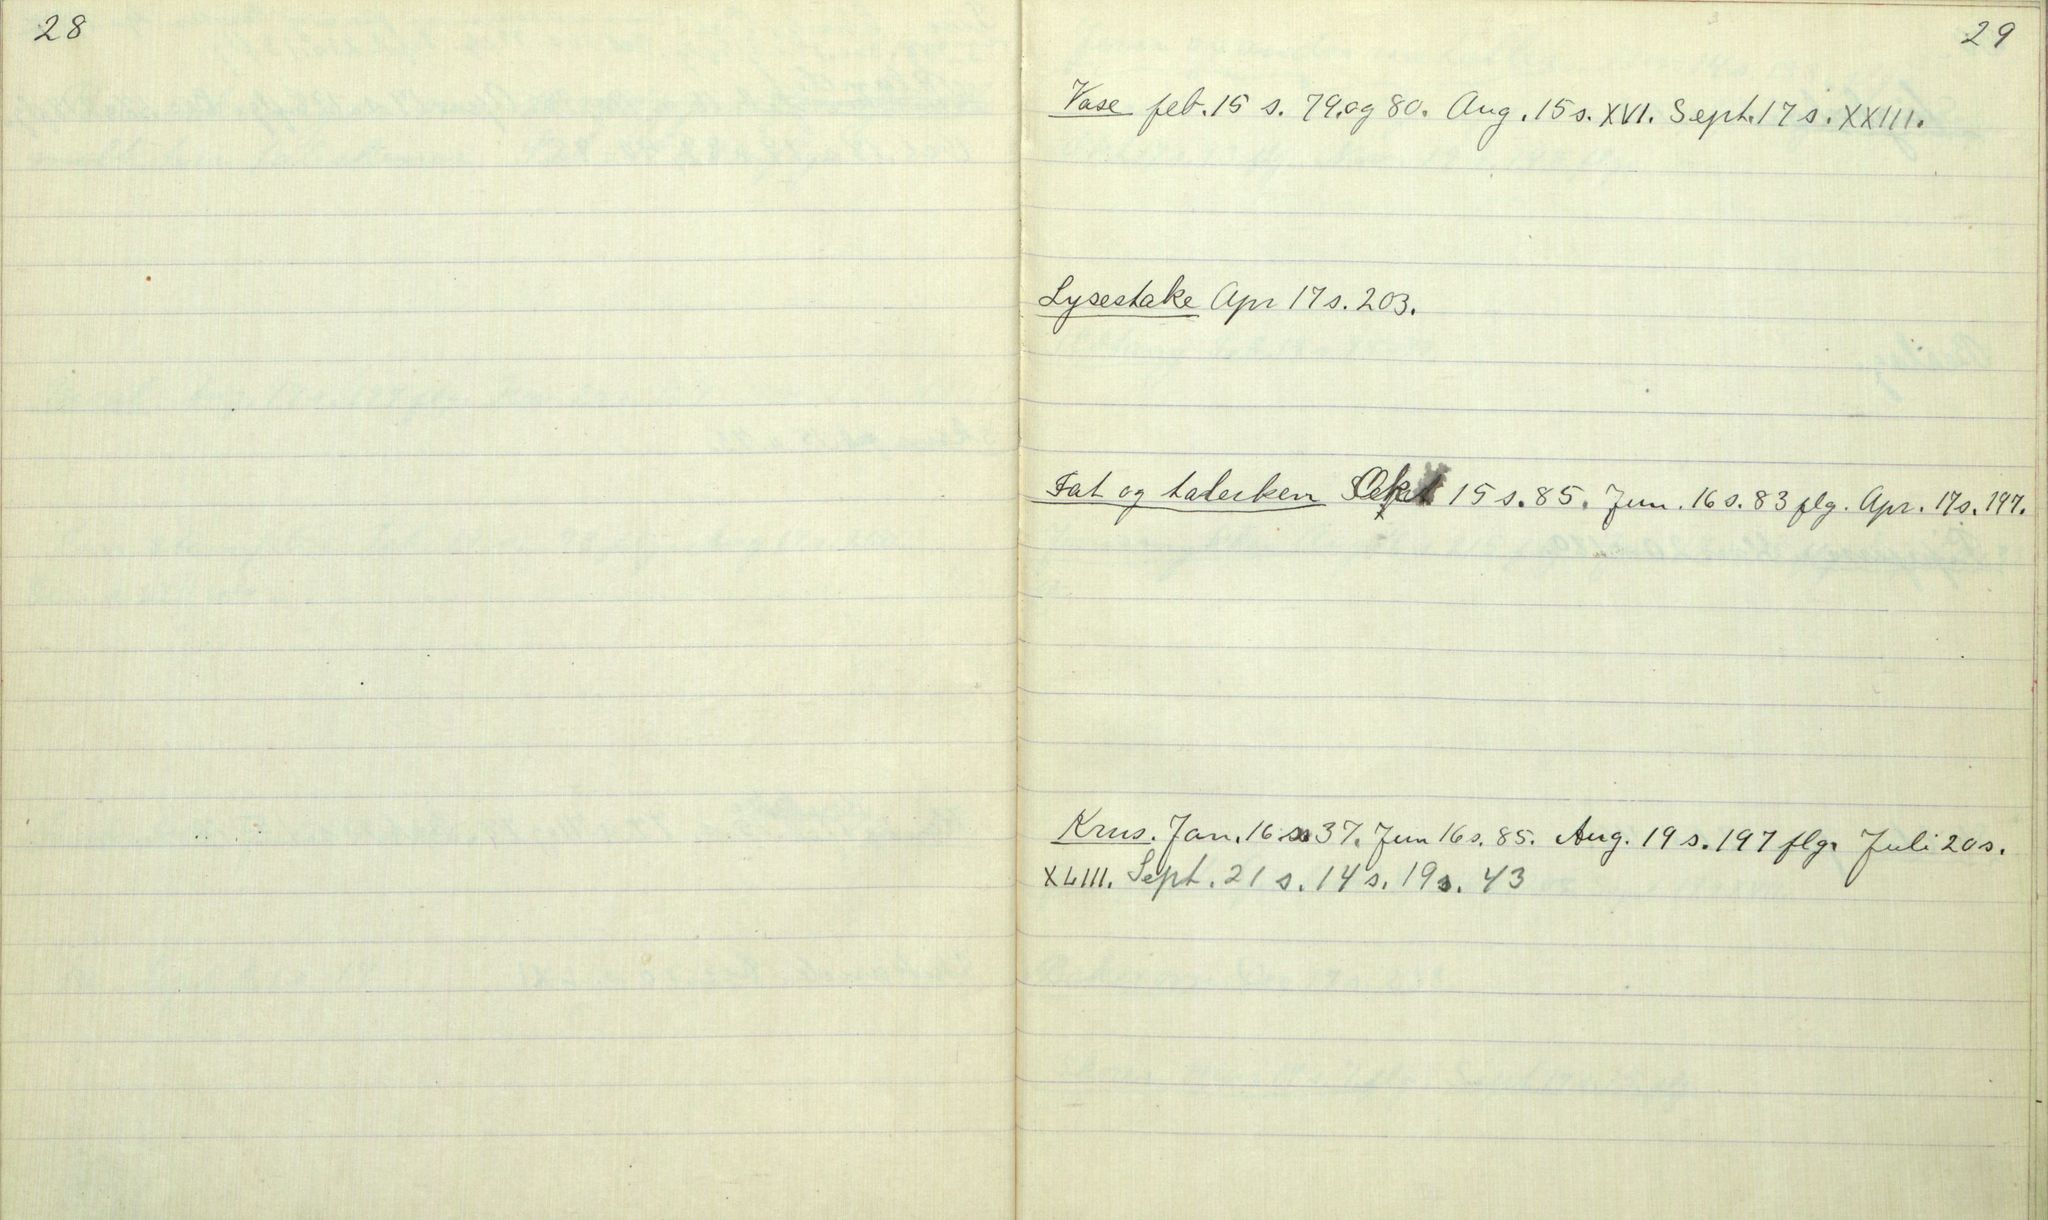 28
29
Vase feb. 15 s. 79. og 80. Aug. 15 s. XVI. Sept. 17 s. XXIII.
Lysestake Apr 17 s. 203.
Fat og talerken Okt 15 s. 85. Jun. 16 s. 83 flg. Apr. 17 s. 197.
Krus. Jan. 16 s. 37. Jun 16 s. 85. Aug. 19 s. 197 flg. Juli 20 s.
XLIII. Sept. 21 s. 14 s. 19 s. 43